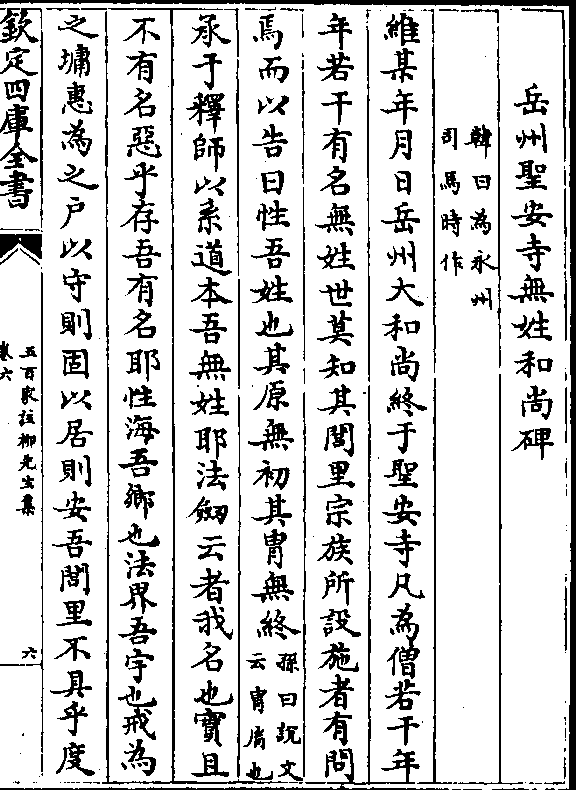 岳州聖安寺無姓和尚碑
韓曰為永州
司馬時作
維某年月日岳州大和尚終于聖安寺凡為僧若干年
年若干有名無姓世莫知其閭里宗族所設施者有問
焉而以告曰性吾姓也其原無初其胄無終孫曰說文
云胄裔也
承于釋師以系道本吾無姓耶法劒云者我名也實且
不有名惡乎存吾有名耶性海吾鄉也法界吾宇也戒為
之墉惠為之戶以守則固以居則安吾閭里不具乎度
欽定四庫全書
五百家註柳先生集
卷六
六